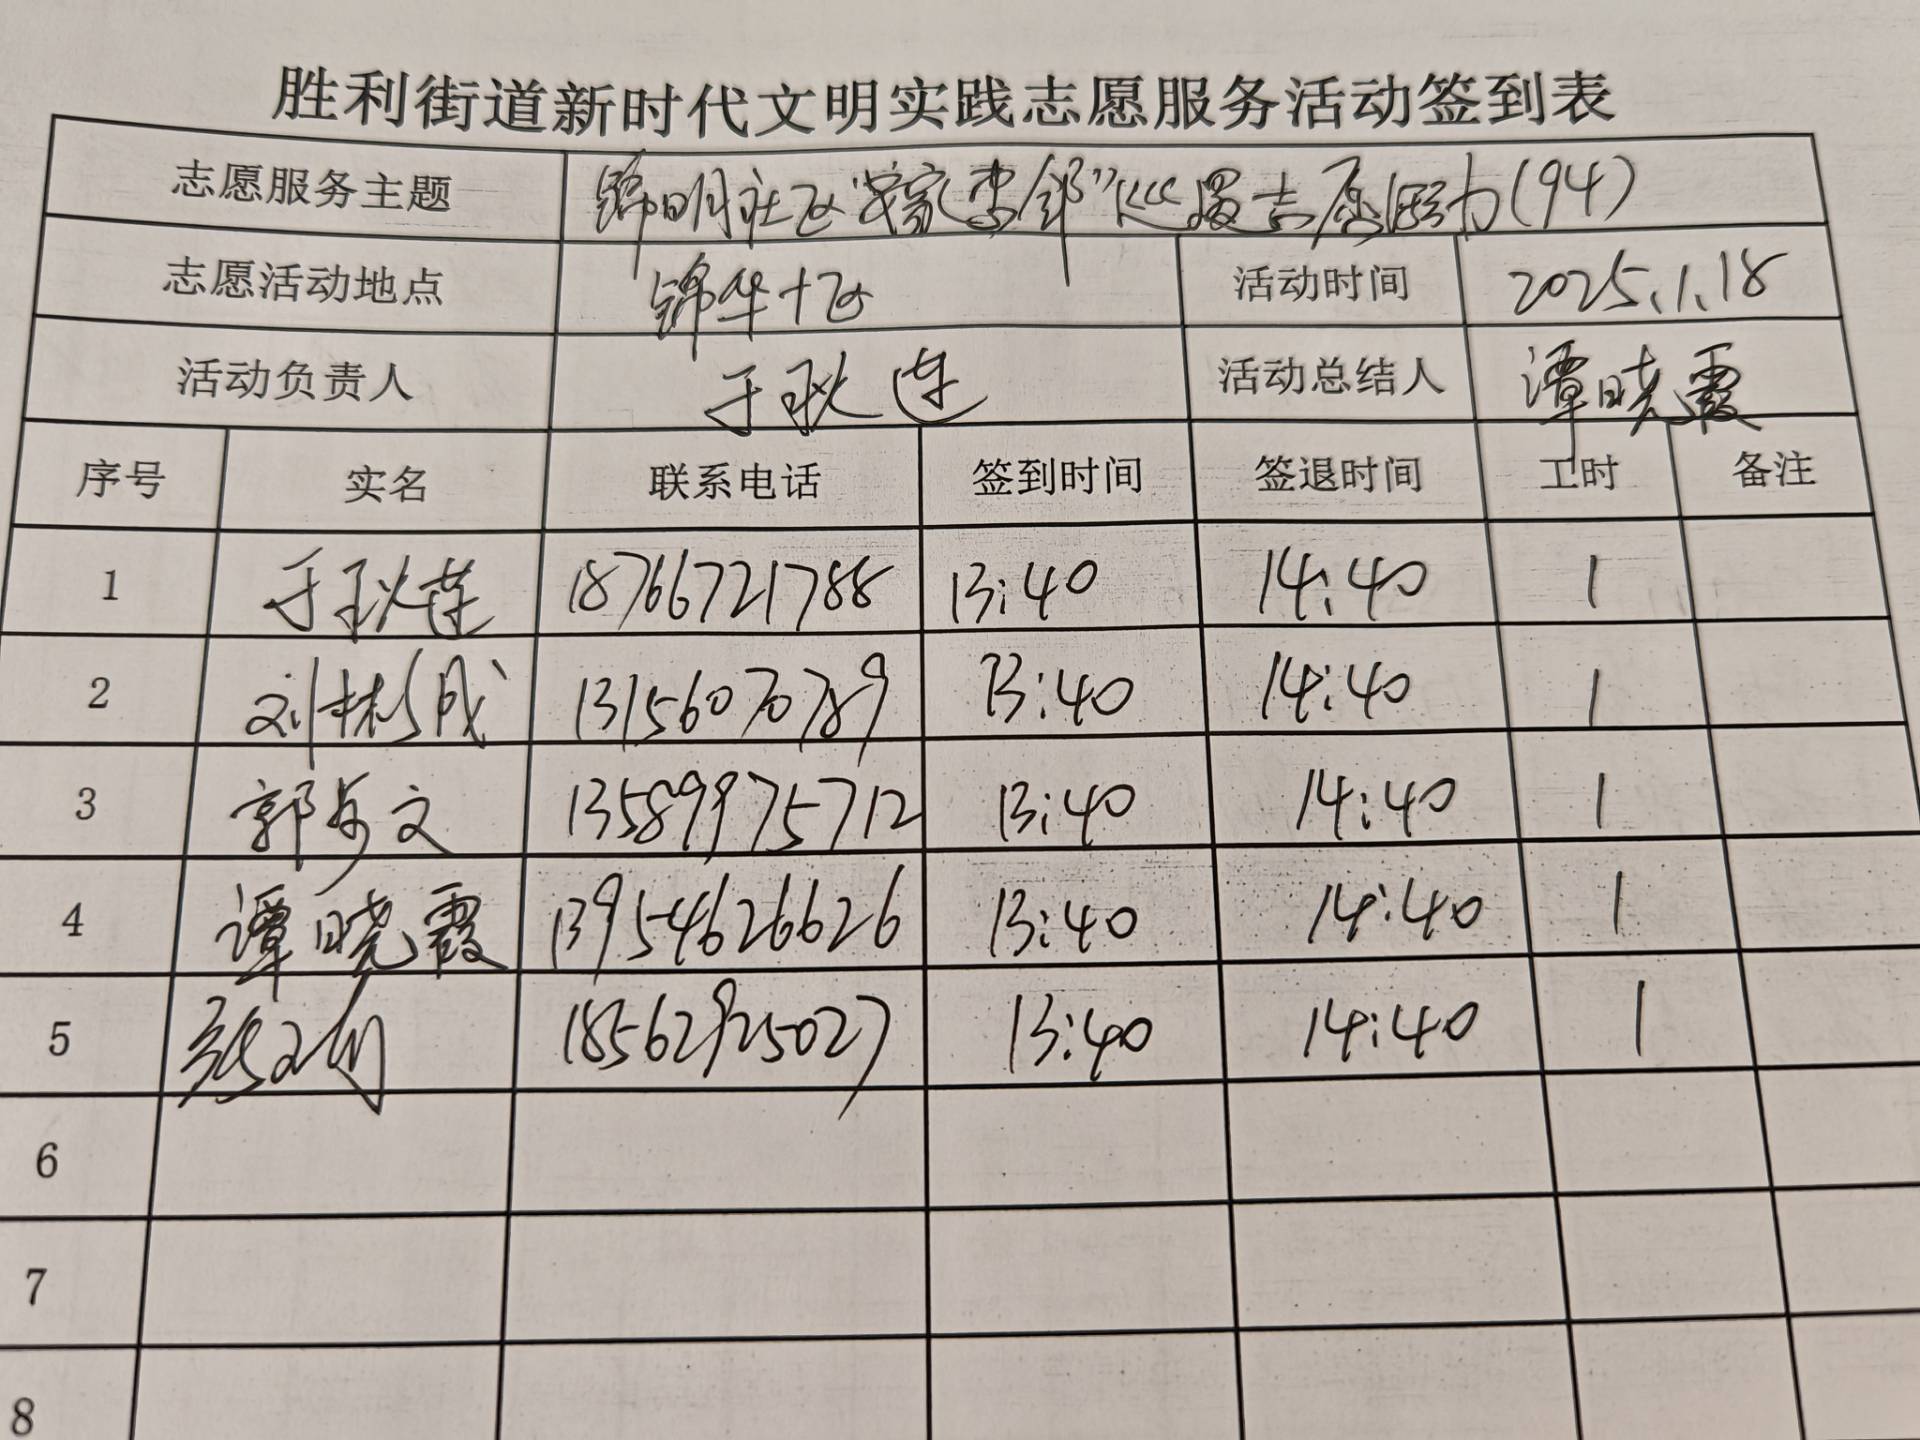 胜利街道新时代文明实践志愿服务活动签到表
志愿服务主题 锦明社区 (94)
志愿活动地点 锦华十区 活动时间 2025.1.18
活动负责人 于秋莲 活动总结人 谭晓霞
序号 实名 联系电话 签到时间 签退时间 工时 备注
1 于秋莲 18766721788 13:40 14:40 1
2 刘彬成 13156070789 13:40 14:40 1
3 郭乐文 13589975712 13:40 14:40 1
4 谭晓霞 13954626626 13:40 14:40 1
5 18562925027 13:40 14:40 1
6
7
8